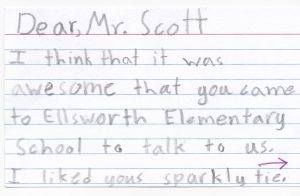 Dear, Mr. Scott
I think that it was
awesome that you came
to Ellsworth Elementary
School to talk to us.
I liked yous sparkly tie.